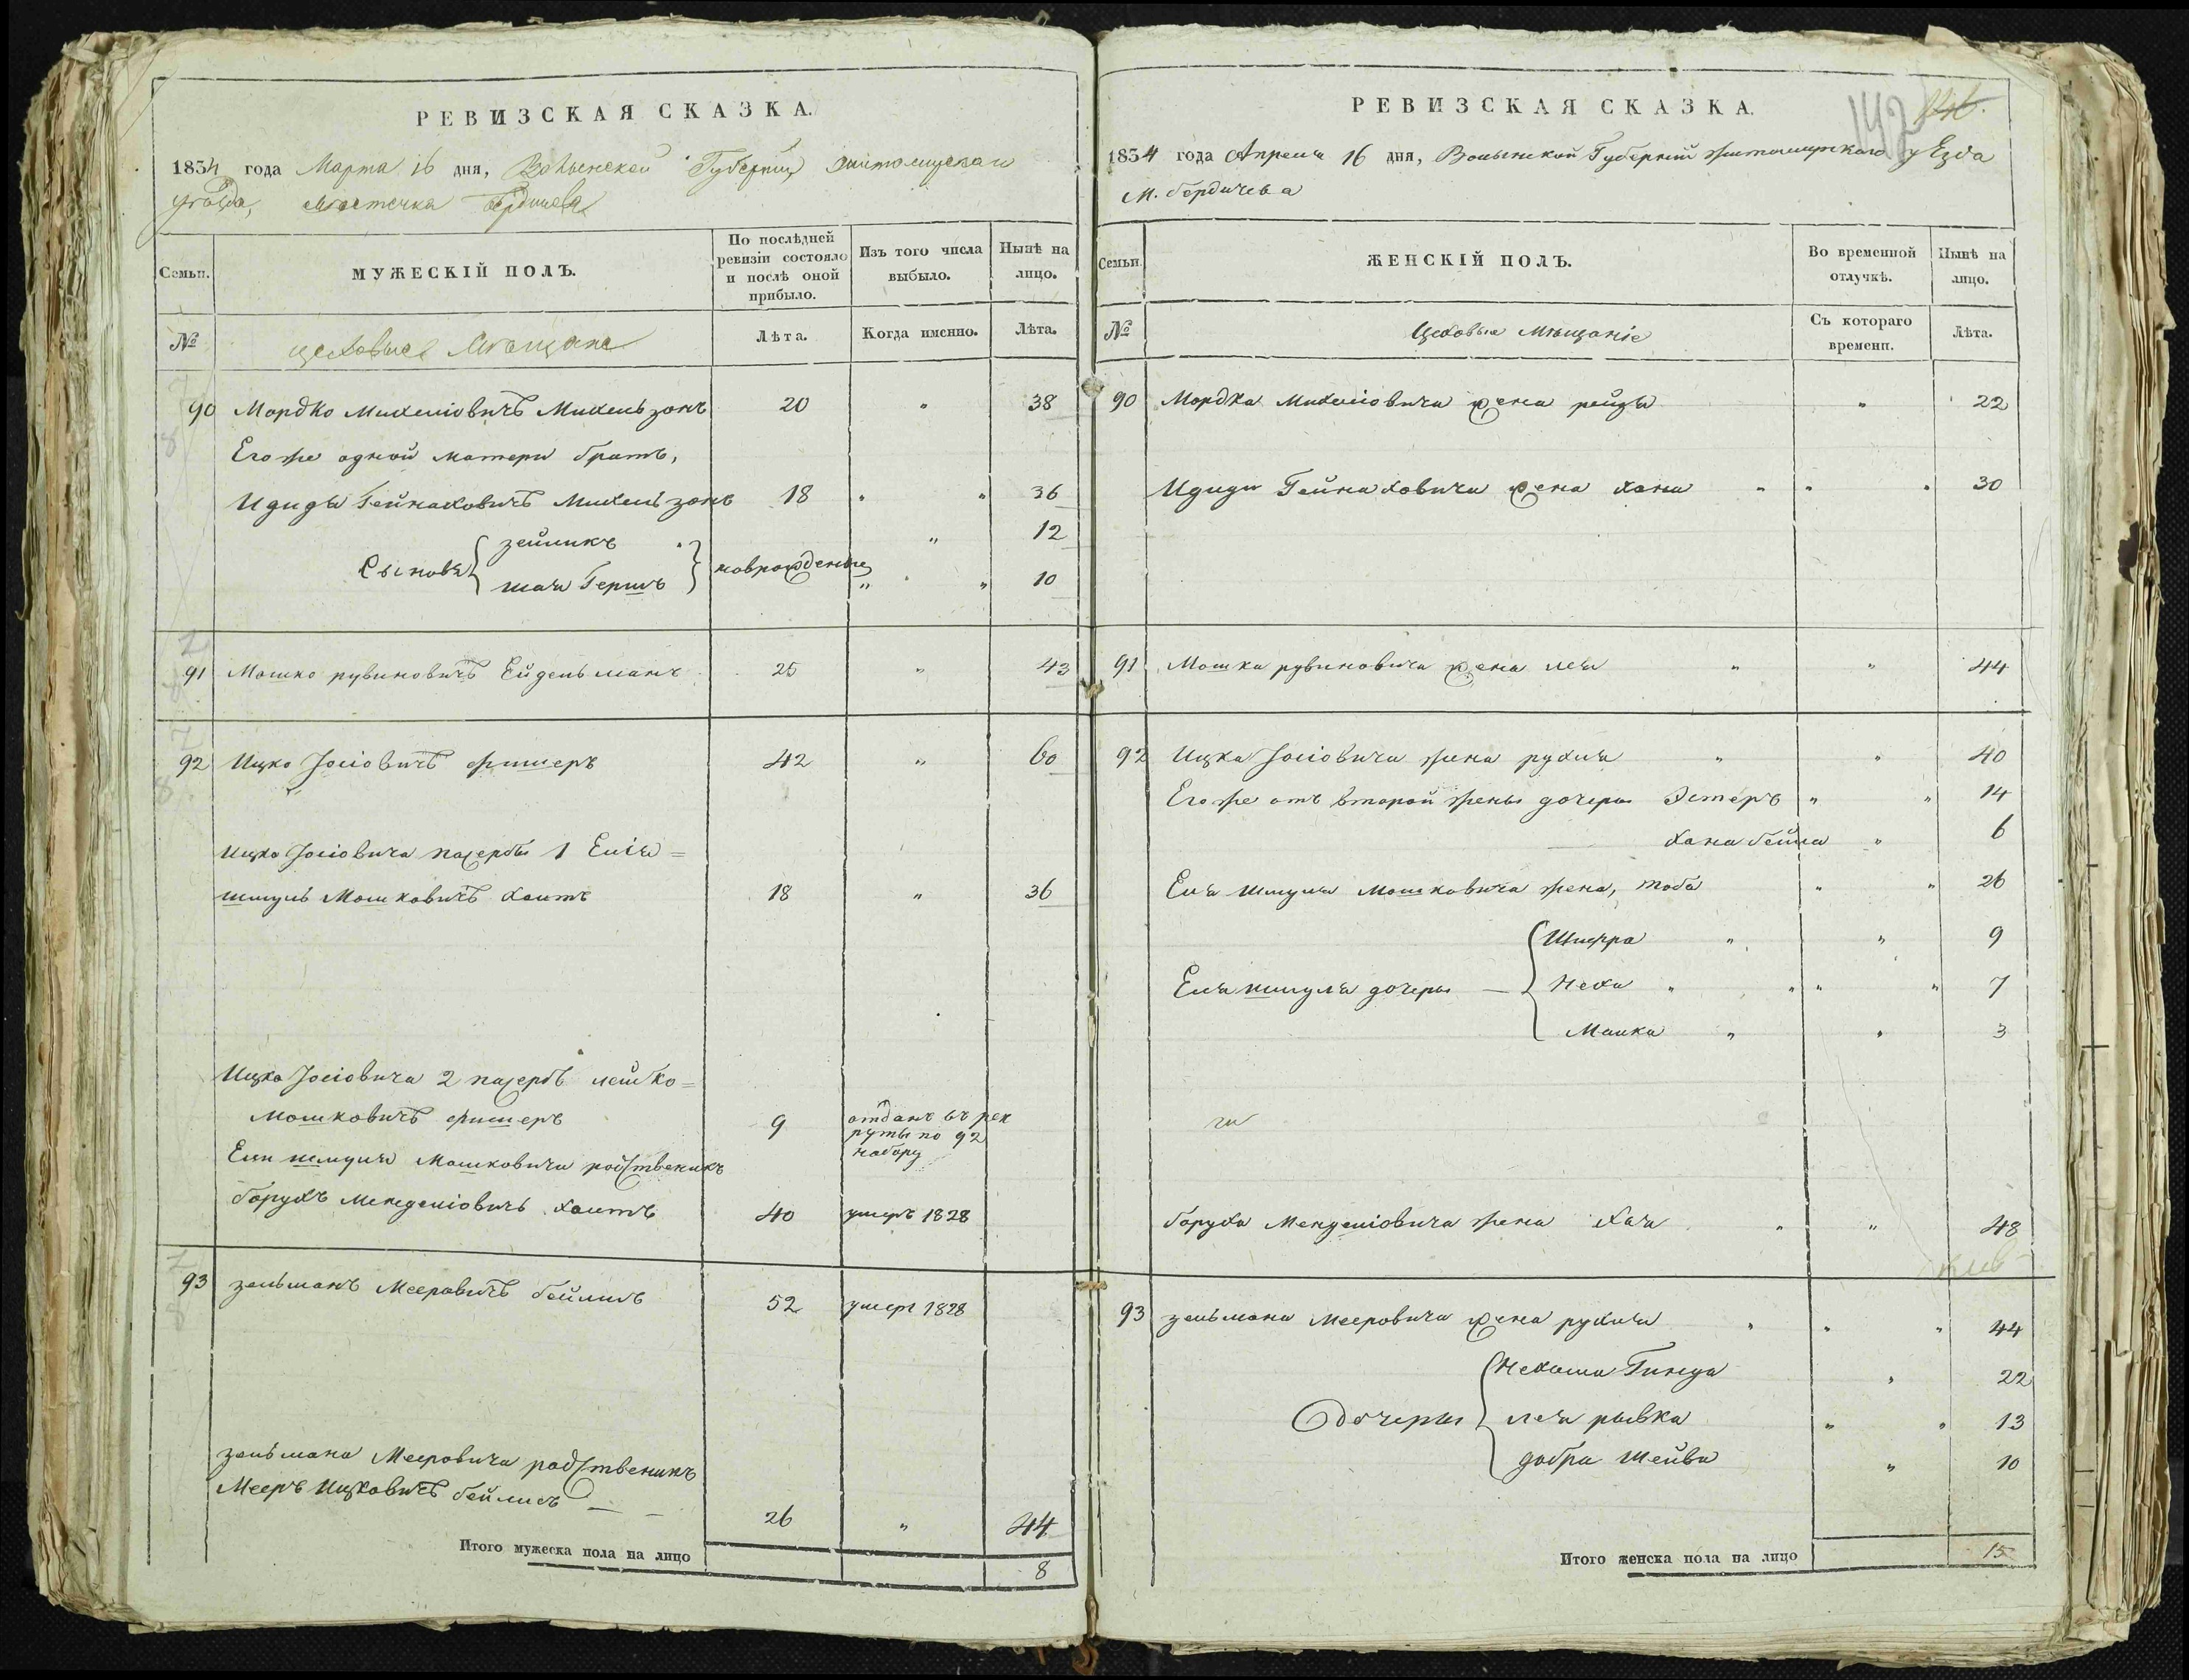 РЕВИЗСКАЯ СКАЗКА.
1834 года Марта 16 дня, Волынской Губернии Житомирскаго
уѣзда, мѣстечка Бердичева
Семьи.
МУЖЕСКІЙ ПОЛЪ.
По послѣдней ревизіи состояло и послѣ оной прибыло.
Изъ того числа выбыло.
Нынѣ на лицо.
№
цеховые Мѣщане
Лѣта.
Когда именно.
Лѣта.
90 Мордко Михеліовичъ Михельзонъ 20 " 38
Его же одной матери братъ,
Идидъ Гейнаховичъ Михельзонъ 18 " " 36
Сыновя { зейликъ " 12
шая Гершъ } новрожденые " " 10
91 Мошко рувиновичъ Ейдельманъ 25 " 43
92 Ицко Јосіовичъ фишеръ 42 " 60
Ицка Јосіовича пасербы 1 Еліа=
шмуль Мошковичъ хаитъ 18 " 36
Ицка Јосіовича 2 пасербъ лейбко=
Мошковичъ фишеръ 9 отданъ въ рек
руты по 92
набору
Ели шмуля Мошковича родственикъ
борухъ Менделіовичъ хаитъ 40 умеръ 1828
93 зельманъ Мееровичъ бейлисъ 52 умеръ 1828
зельмана Мееровича родственикъ
Мееръ Ицковичъ бейлисъ — — 26 " 44
Итого мужеска пола на лицо 8
142
РЕВИЗСКАЯ СКАЗКА.
1834 года Апреля 16 дня, Волынской Губерніи Житомирскаго уЕзда
М. бердичева
Семьи.
ЖЕНСКІЙ ПОЛЪ.
Во временной отлучкѣ.
Нынѣ на лицо.
№
Цеховые Мѣщаніе
Съ котораго времени.
Лѣта.
90 Мордка Михеліовича жена рейзя " 22
Идиди Гейнаховича жена хана " " " 30
91 Мошка рувиновича жена лея " " 44
92 Ицка Јосіовича жена рухля " " 40
Его же отъ второй жены дочеры Эстеръ " " 14
хана бейла " 6
Еля шмуля Мошковича жена, тоба " " 26
{ Шифра " " 9
Еля шмуля дочеры — { Неха " " " " 7
Малка " " 3
боруха Менделіовича жена хая " " 48
93 зельмана Мееровича жена рухля " " " 44
{ Нехама Гинда " 22
дочеры { лея рывка " " 13
добра шейва " 10
Итого женска пола на лицо 15